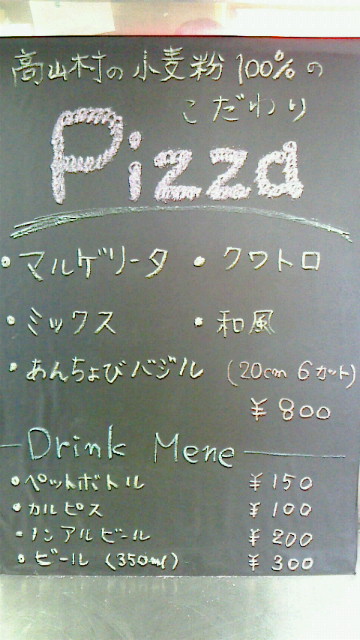 高山村の小麦粉100%の
こだわり
Pizza
・マルゲリータ ・クワトロ
・ミックス ・和風
・あんちょびバジル (20cm 6カット)
¥800
Drink Mene
・ペットボトル ¥150
・カルピス ¥100
・ノンアルビール ¥200
・ビール (350ml) ¥300